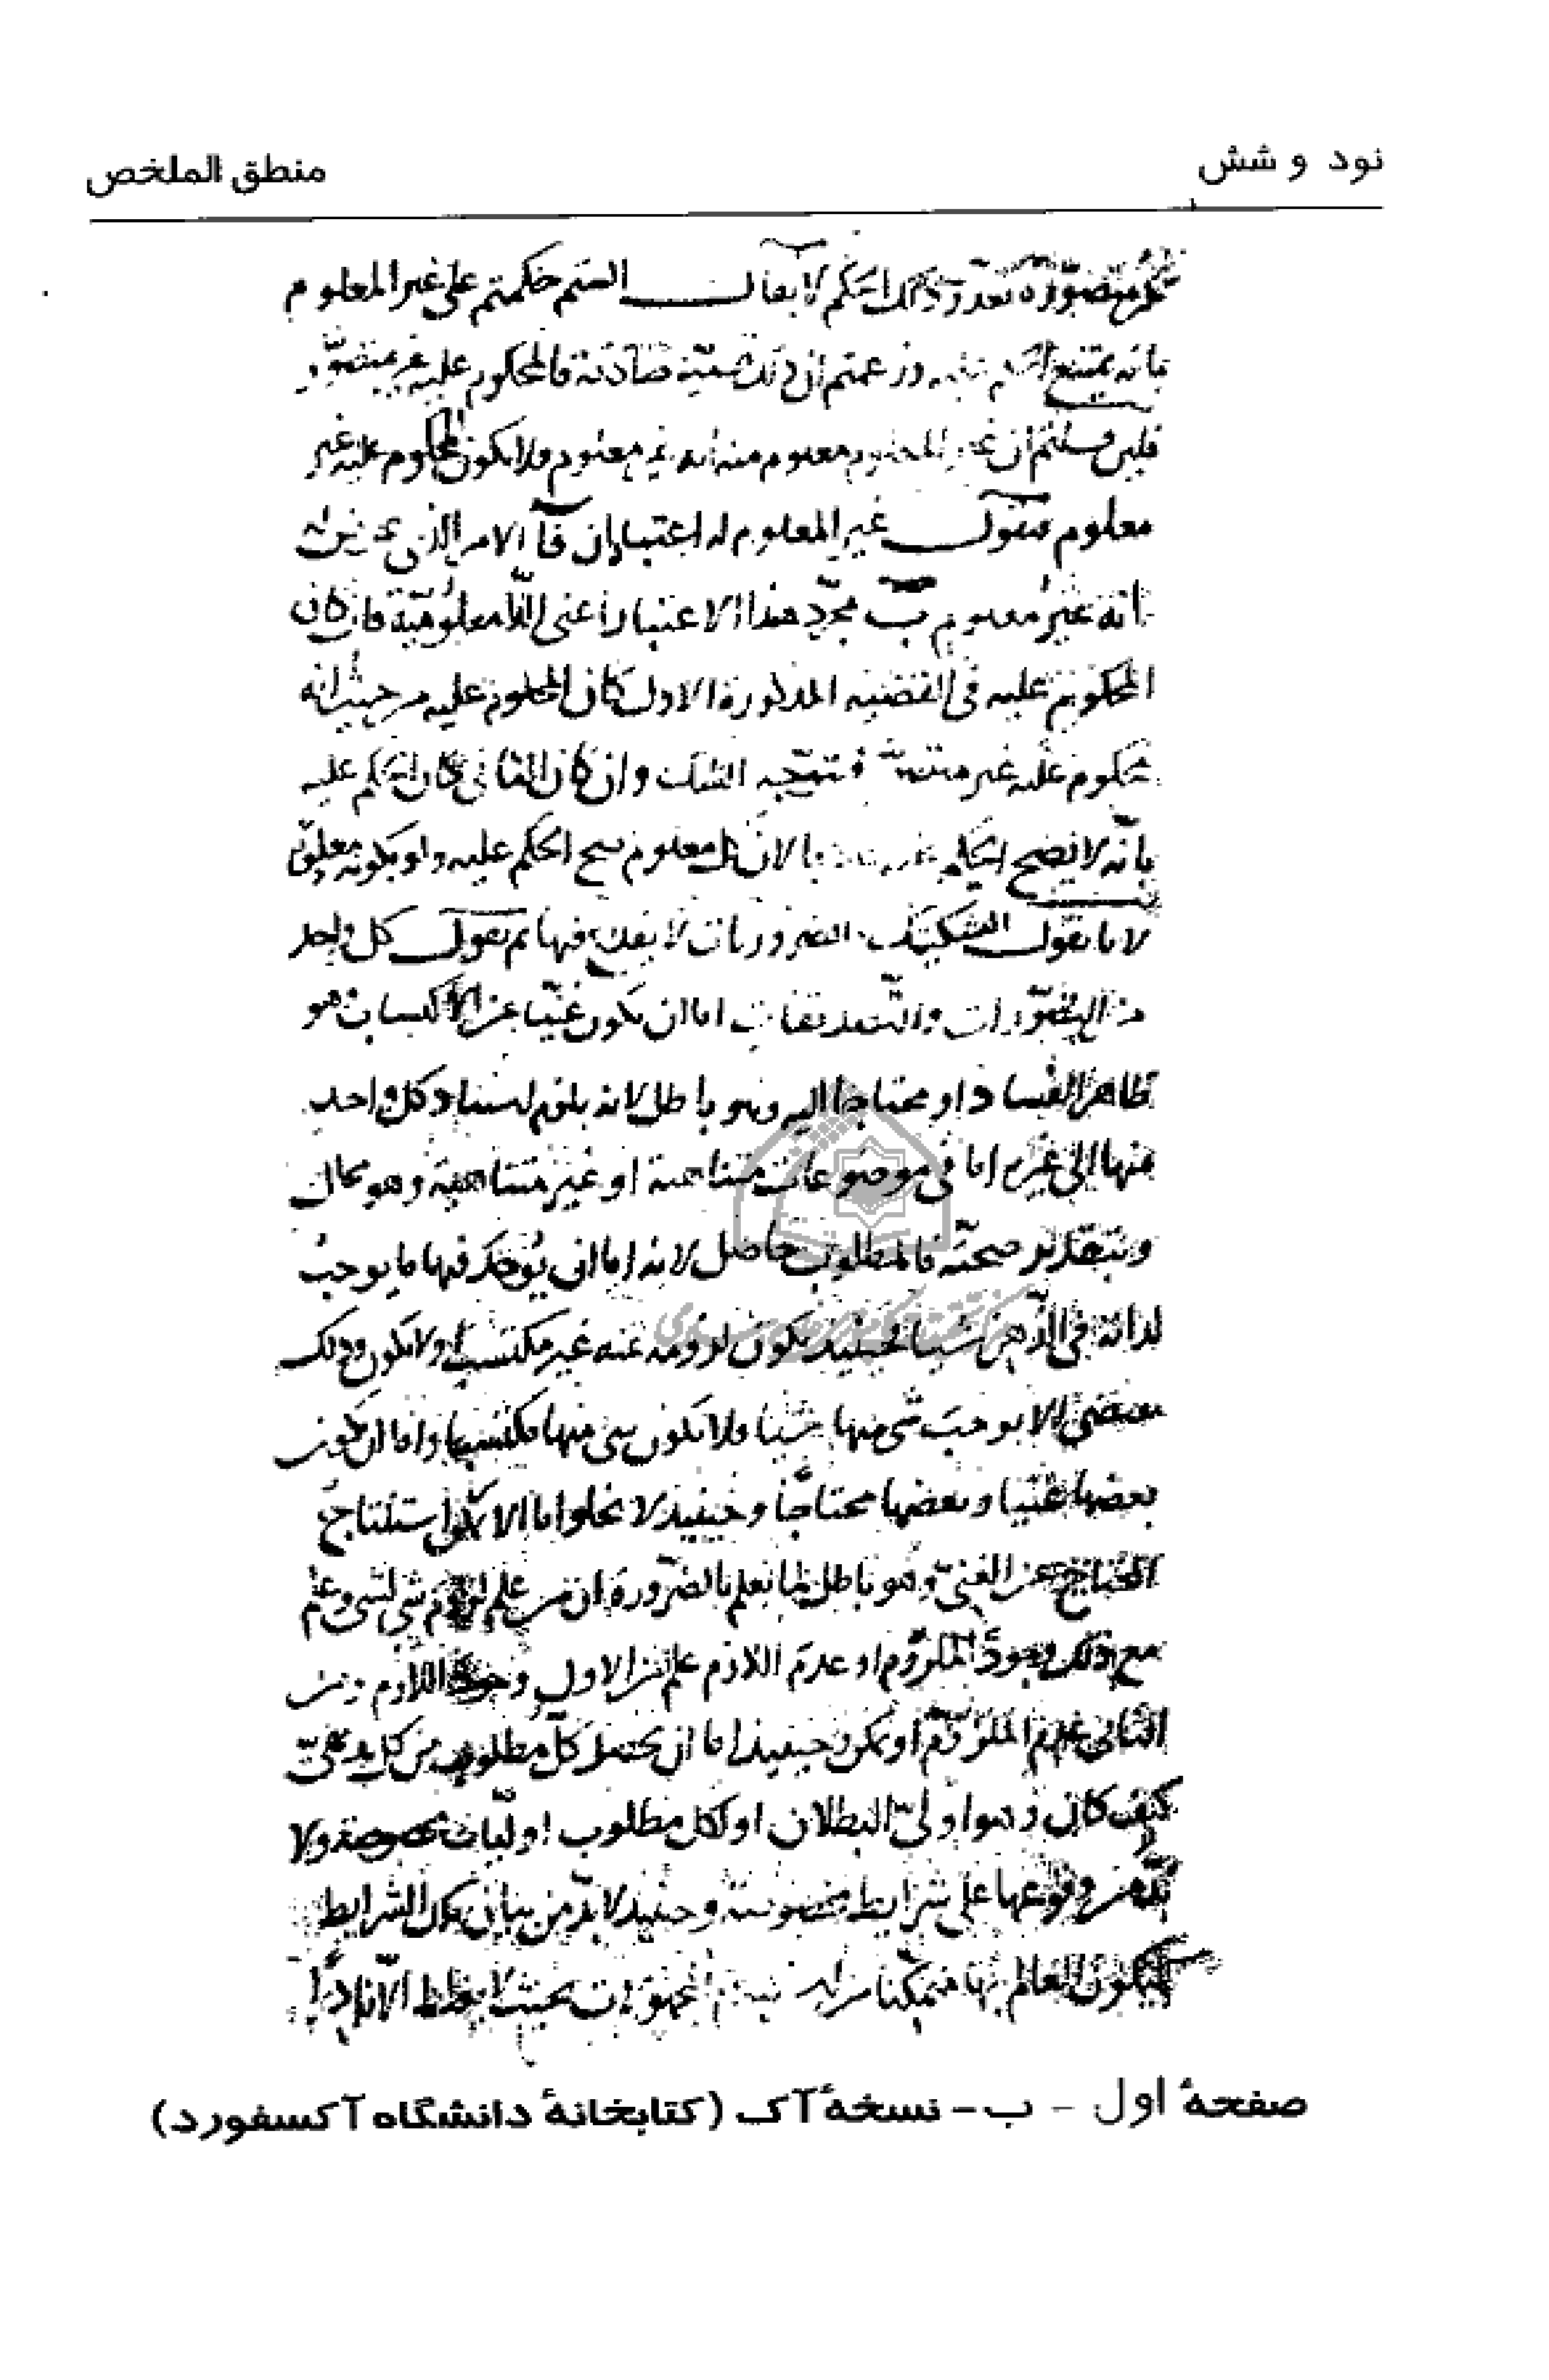 نود و شش
منطق الملخص
متصورة تعذر ذلك الحكم لا يقال الستم حكمتم على غير المعلوم
بانه يمتنع الحكم عليه وزعمتم ان ذلك قضية صادقة فالمحكوم عليه غير متصور
فلئن قلتم ان غير المعلوم معلوم منه انه غير معلوم فلا يكون المحكوم عليه غير
معلوم فنقول غير المعلوم له اعتباران آ الامر الذى
انه غير معلوم ب مجرد هذا الاعتبار اعنى اللامعلومية فان كان
المحكوم عليه فى القضية المذكورة الاول كان المحكوم عليه من حيث انه
محكوم عليه غير فيتوجه الشك وان كان الثانى كان الحكم عليه
بانه لا يصح الحكم لان كل معلوم يصح الحكم عليه ولو بكونه معلوما
لانا نقول التشكيك الضروريات لا يقدح فيها ثم نقول كل واحد
من التصورات والتصديقات اما ان يكون غنيا عن الاكتساب وهو
ظاهر الفساد او محتاجا اليه وهو باطل لانه يلزم استناد كل واحد
منها الى غيره اما فى موضوعات متناهية او غير متناهية وهو محال
وبتقدير صحته فالمطلوب حاصل لانه اما ان يوجد فيها ما يوجب
لذاته فى الذهن شيئا فحينئذ يكون لزومه عنه غير مكتسب او لا يكون وذلك
يقتضى الا يوجب شى منها شيئا ولا يكون شى منها مكتسبا واما ان يكون
بعضها غنيا وبعضها محتاجا وحينئذ لا يخلو اما الا يمكن استنتاج
المحتاج عن الغنى وهو باطل لما نعلم بالضرورة ان من علم لزوم شى لشى وعلم
مع ذلك وجود الملزوم او عدم اللازم علم من الاول وجود اللازم ومن
الثانى عدم الملزوم او يمكن وحينئذ اما ان يحتمل كل مطلوب من كل بديهى
كيف كان وهو اولى البطلان او لكل مطلوب اوليات مخصوصة ولا
بد من وقوعها على شرايط مخصوصة وحينئذ لابد من بيان تلك الشرايط
ليكون العالم بها متمكنا من المجهولات بحيث لا يغلط الا نادرا
صفحهٔ اول - ب - نسخهٔ آک (کتابخانهٔ دانشگاه آکسفورد)